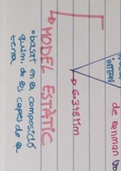 6.378 Km
MODEL ESTÀTIC
• basat en la composició
quím. de les capes de la
terra